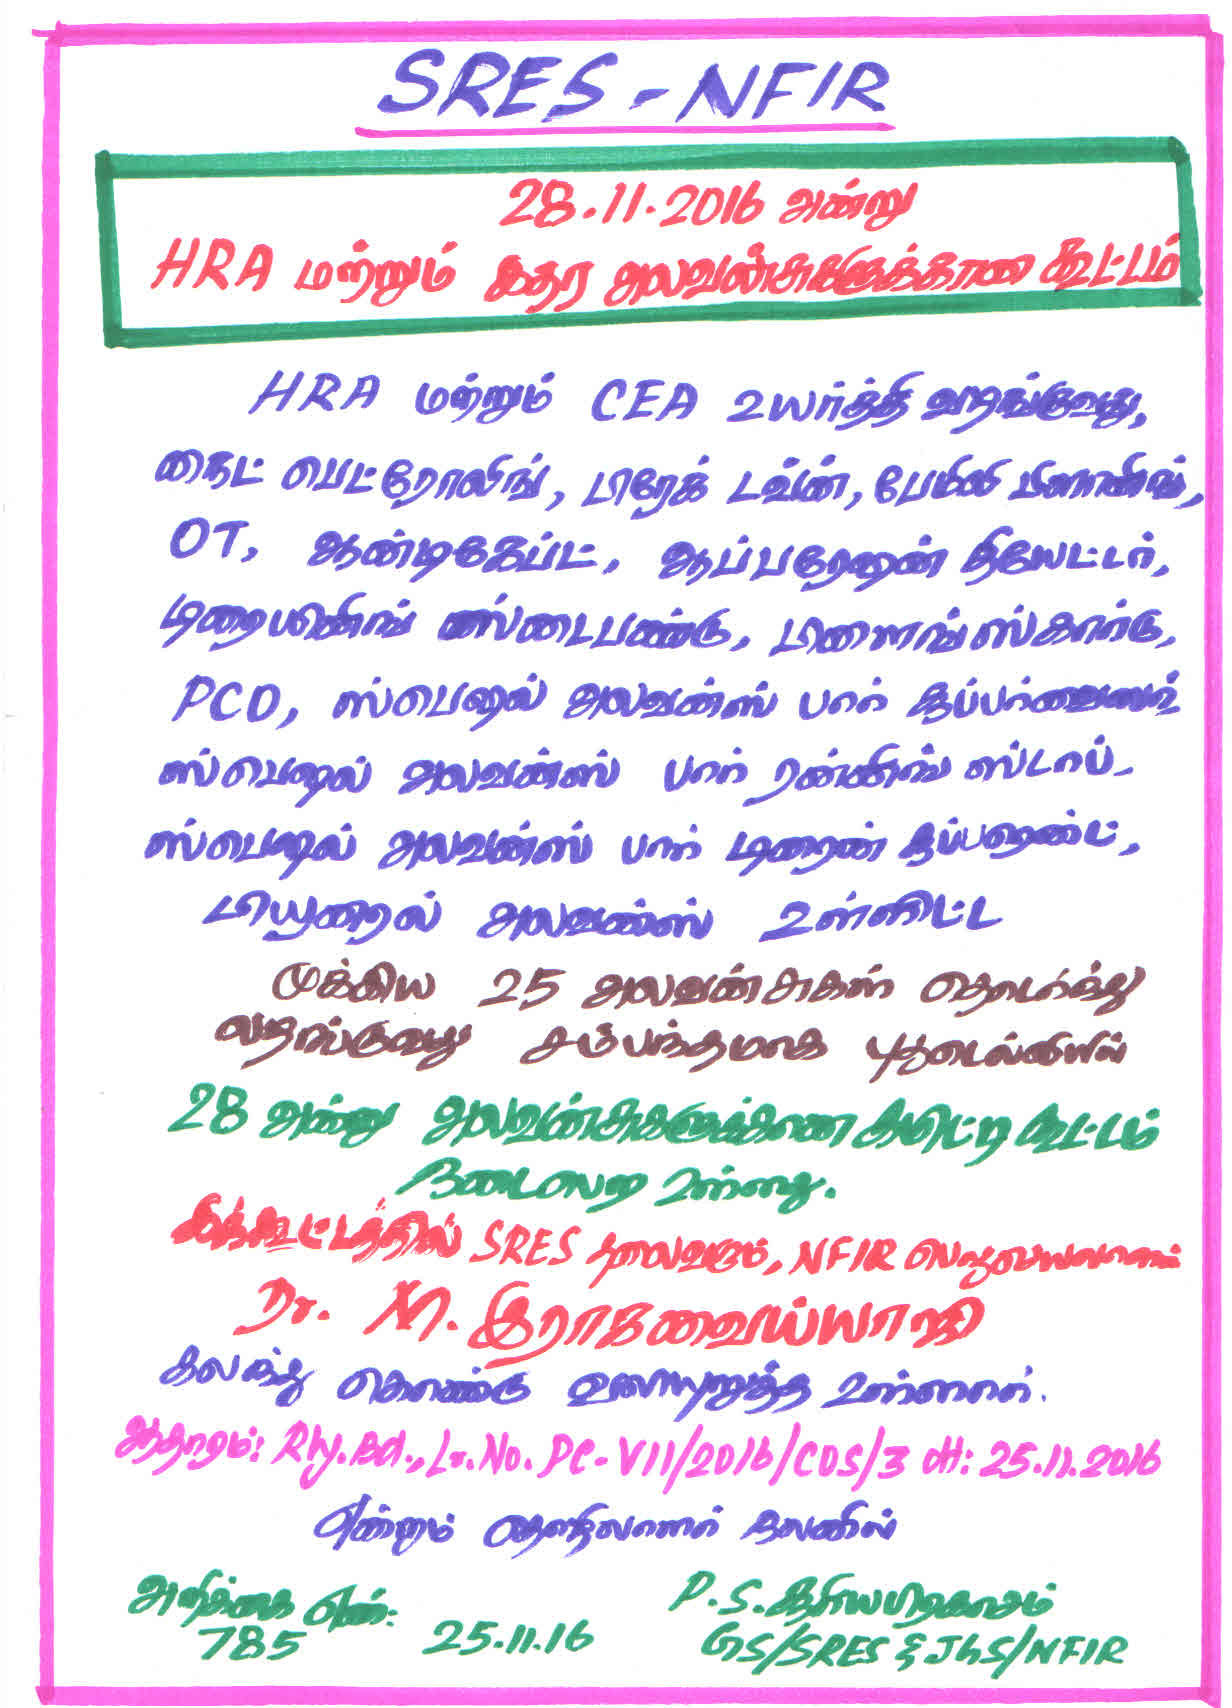 SRES - NFIR
28.11.2016 அன்று
HRA மற்றும் இதர அலவன்சுகளுக்கான கூட்டம்
HRA மற்றும் CEA உயர்த்தி வழங்குவது,
நைட் பெட்ரோலிங், பிரேக் டவ்ன், பேமிலி பிளானிங்,
OT, ஆண்டிகேப்ட், ஆப்பரேஷன் தியேட்டர்,
டிரையினிங் ஸ்டைபண்டு, மிளைங்ஸ்கார்டு,
PCO, ஸ்பெஷல் அலவன்ஸ் பார் சூப்பர்வைசர்
ஸ்பெஷல் அலவன்ஸ் பார் ரன்னிங் ஸ்டாப்,
ஸ்பெஷல் அலவன்ஸ் பார் டிரைன் சூப்பரெண்ட்,
பியுனரல் அலவன்ஸ் உள்ளிட்ட
முக்கிய 25 அலவன்சுகள் தொடர்ந்து
வழங்குவது சம்பந்தமாக புதுடெல்லியில்
28 அன்று அலவன்சுகளுக்கான கமிட்டி கூட்டம்
நடைபெற உள்ளது.
இக்கூட்டத்தில் SRES தலைவரும், NFIR பொதுசெயலாளர்
Dr. M. இராகவைய்யாஜி
கலந்து கொண்டு வலியுறுத்த உள்ளார்.
ஆதாரம்: Rly.Bd., Lr.No. PC-VII/2016/CDS/3 dt: 25.11.2016
என்றும் தொழிலாளர் நலனில்
அறிக்கை எண்:
785
25.11.16
P.S.சூரியபிரகாசம்
GS/SRES & JGS/NFIR